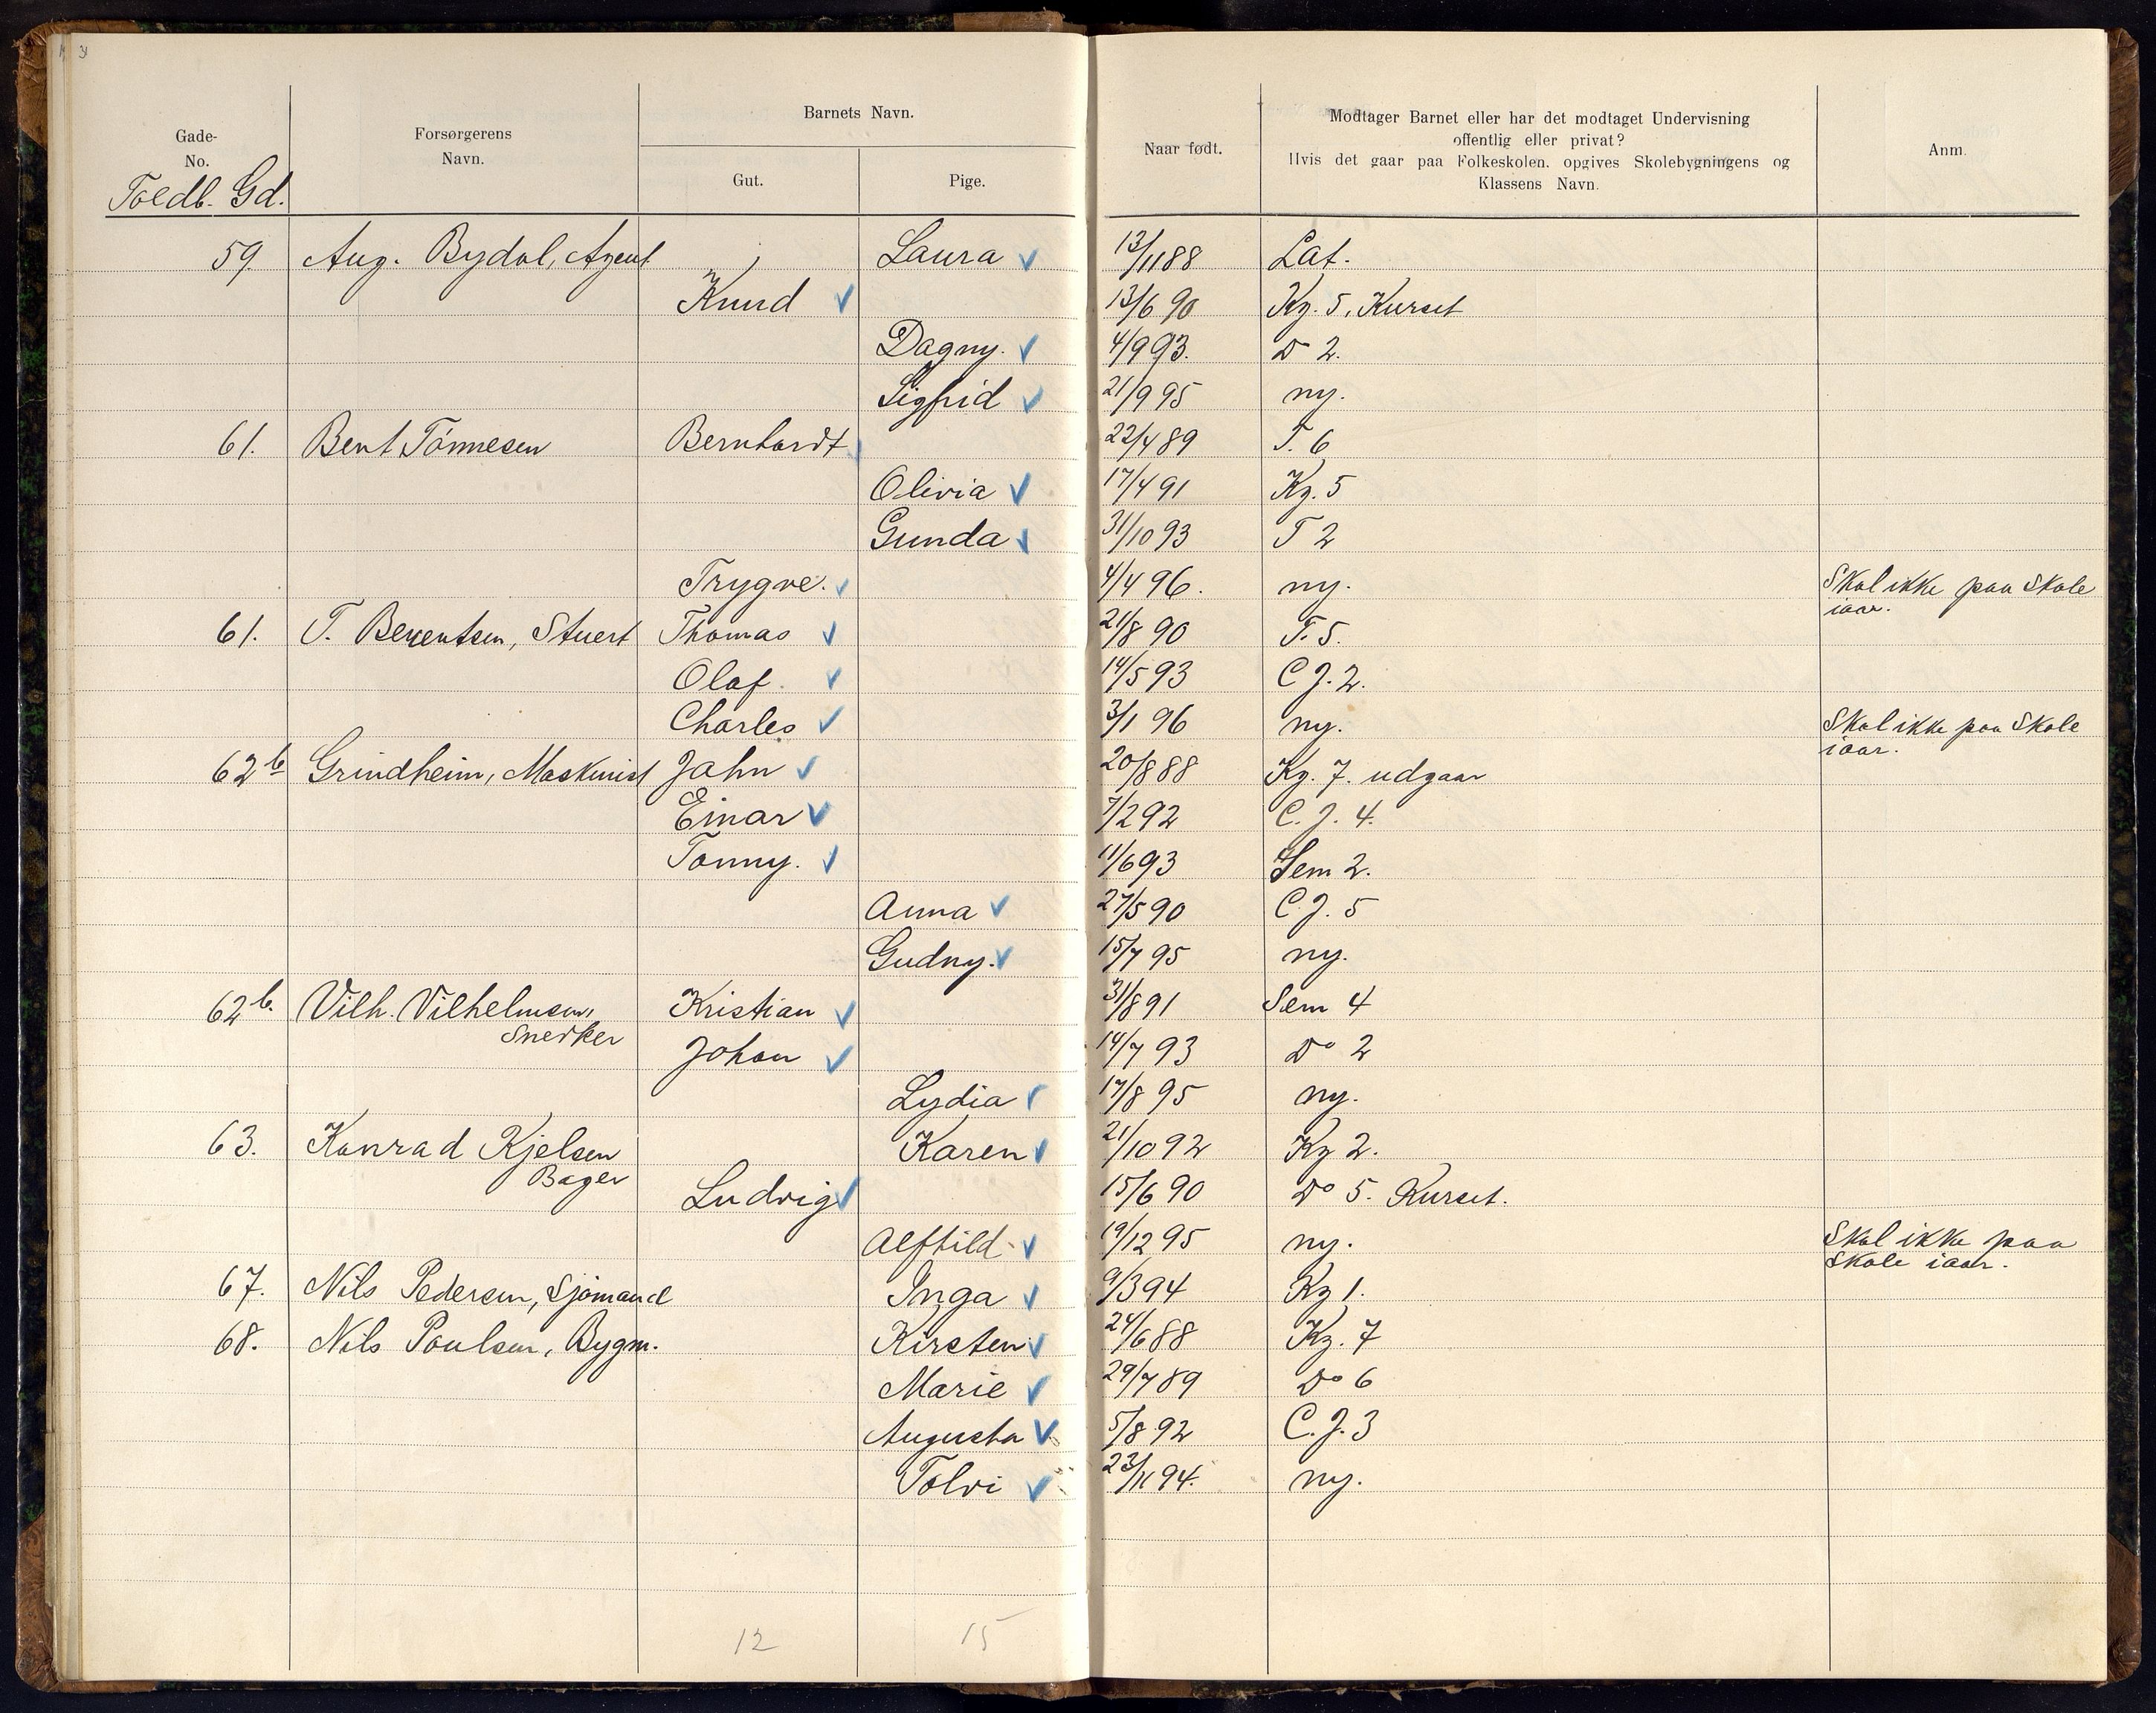 Gade-
No.
Forsørgerens
Navn.
Barnets Navn.
Gut.
Pige.
Naar født.
Modtager Barnet eller har det modtaget Undervisning
offentlig eller privat?
Hvis det gaar paa Folkeskolen, opgives Skolebygningens og
Klassens Navn.
Anm.
Toldb. Gd.
59. Aug. Bydal, Agent Laura 13/11 88 Lat.
Knud 13/6 90 Kg. 5, Kurset
Dagny. 4/9 93. Do 2.
Sigfrid 21/9 95 ny.
61. Bent Tönnesen Bernhardt 22/4 89 T. 6
Olivia 17/4 91 Kg. 5
Gunda 31/10 93 T 2
Trygve. 4/4 96. ny. Skal ikke paa Skole
iaar.
61. T. Berentsen, Stuert Thomas 21/8 90 T. 5.
Olaf. 14/5 93 C J. 2.
Charles 3/1 96 ny. Skal ikke paa Skole
iaar.
62b Grindheim, Maskinist John 20/8 88 Kg. 7. udgaar
Einar 7/2 92 C. J. 4.
Tonny. 11/6 93 Sem 2.
Anna 27/5 90 C. J. 5
Gudny. 15/7 95 ny.
62b. Vilh. Vilhelmsen,
Snedker
Kristian 31/8 91 Sem 4
Johan 14/7 93 Do 2
Lydia 17/8 95 ny.
63. Konrad Kjelsen
Bager
Karen 21/10 92 Kg 2.
Ludvig 15/6 90 Do 5. Kurset.
Alfhild 19/12 95 ny. Skal ikke paa
Skole iaar.
67. Nils Pedersen, Sjömand Inga 9/3 94 Kg 1.
68. Nils Poulsen, Bygm. Kirsten 24/6 88 Kg. 7
Marie 29/7 89 Do 6
Augusta 5/8 92 C. J. 3
Tolvi 23/11 94. ny.
12 15